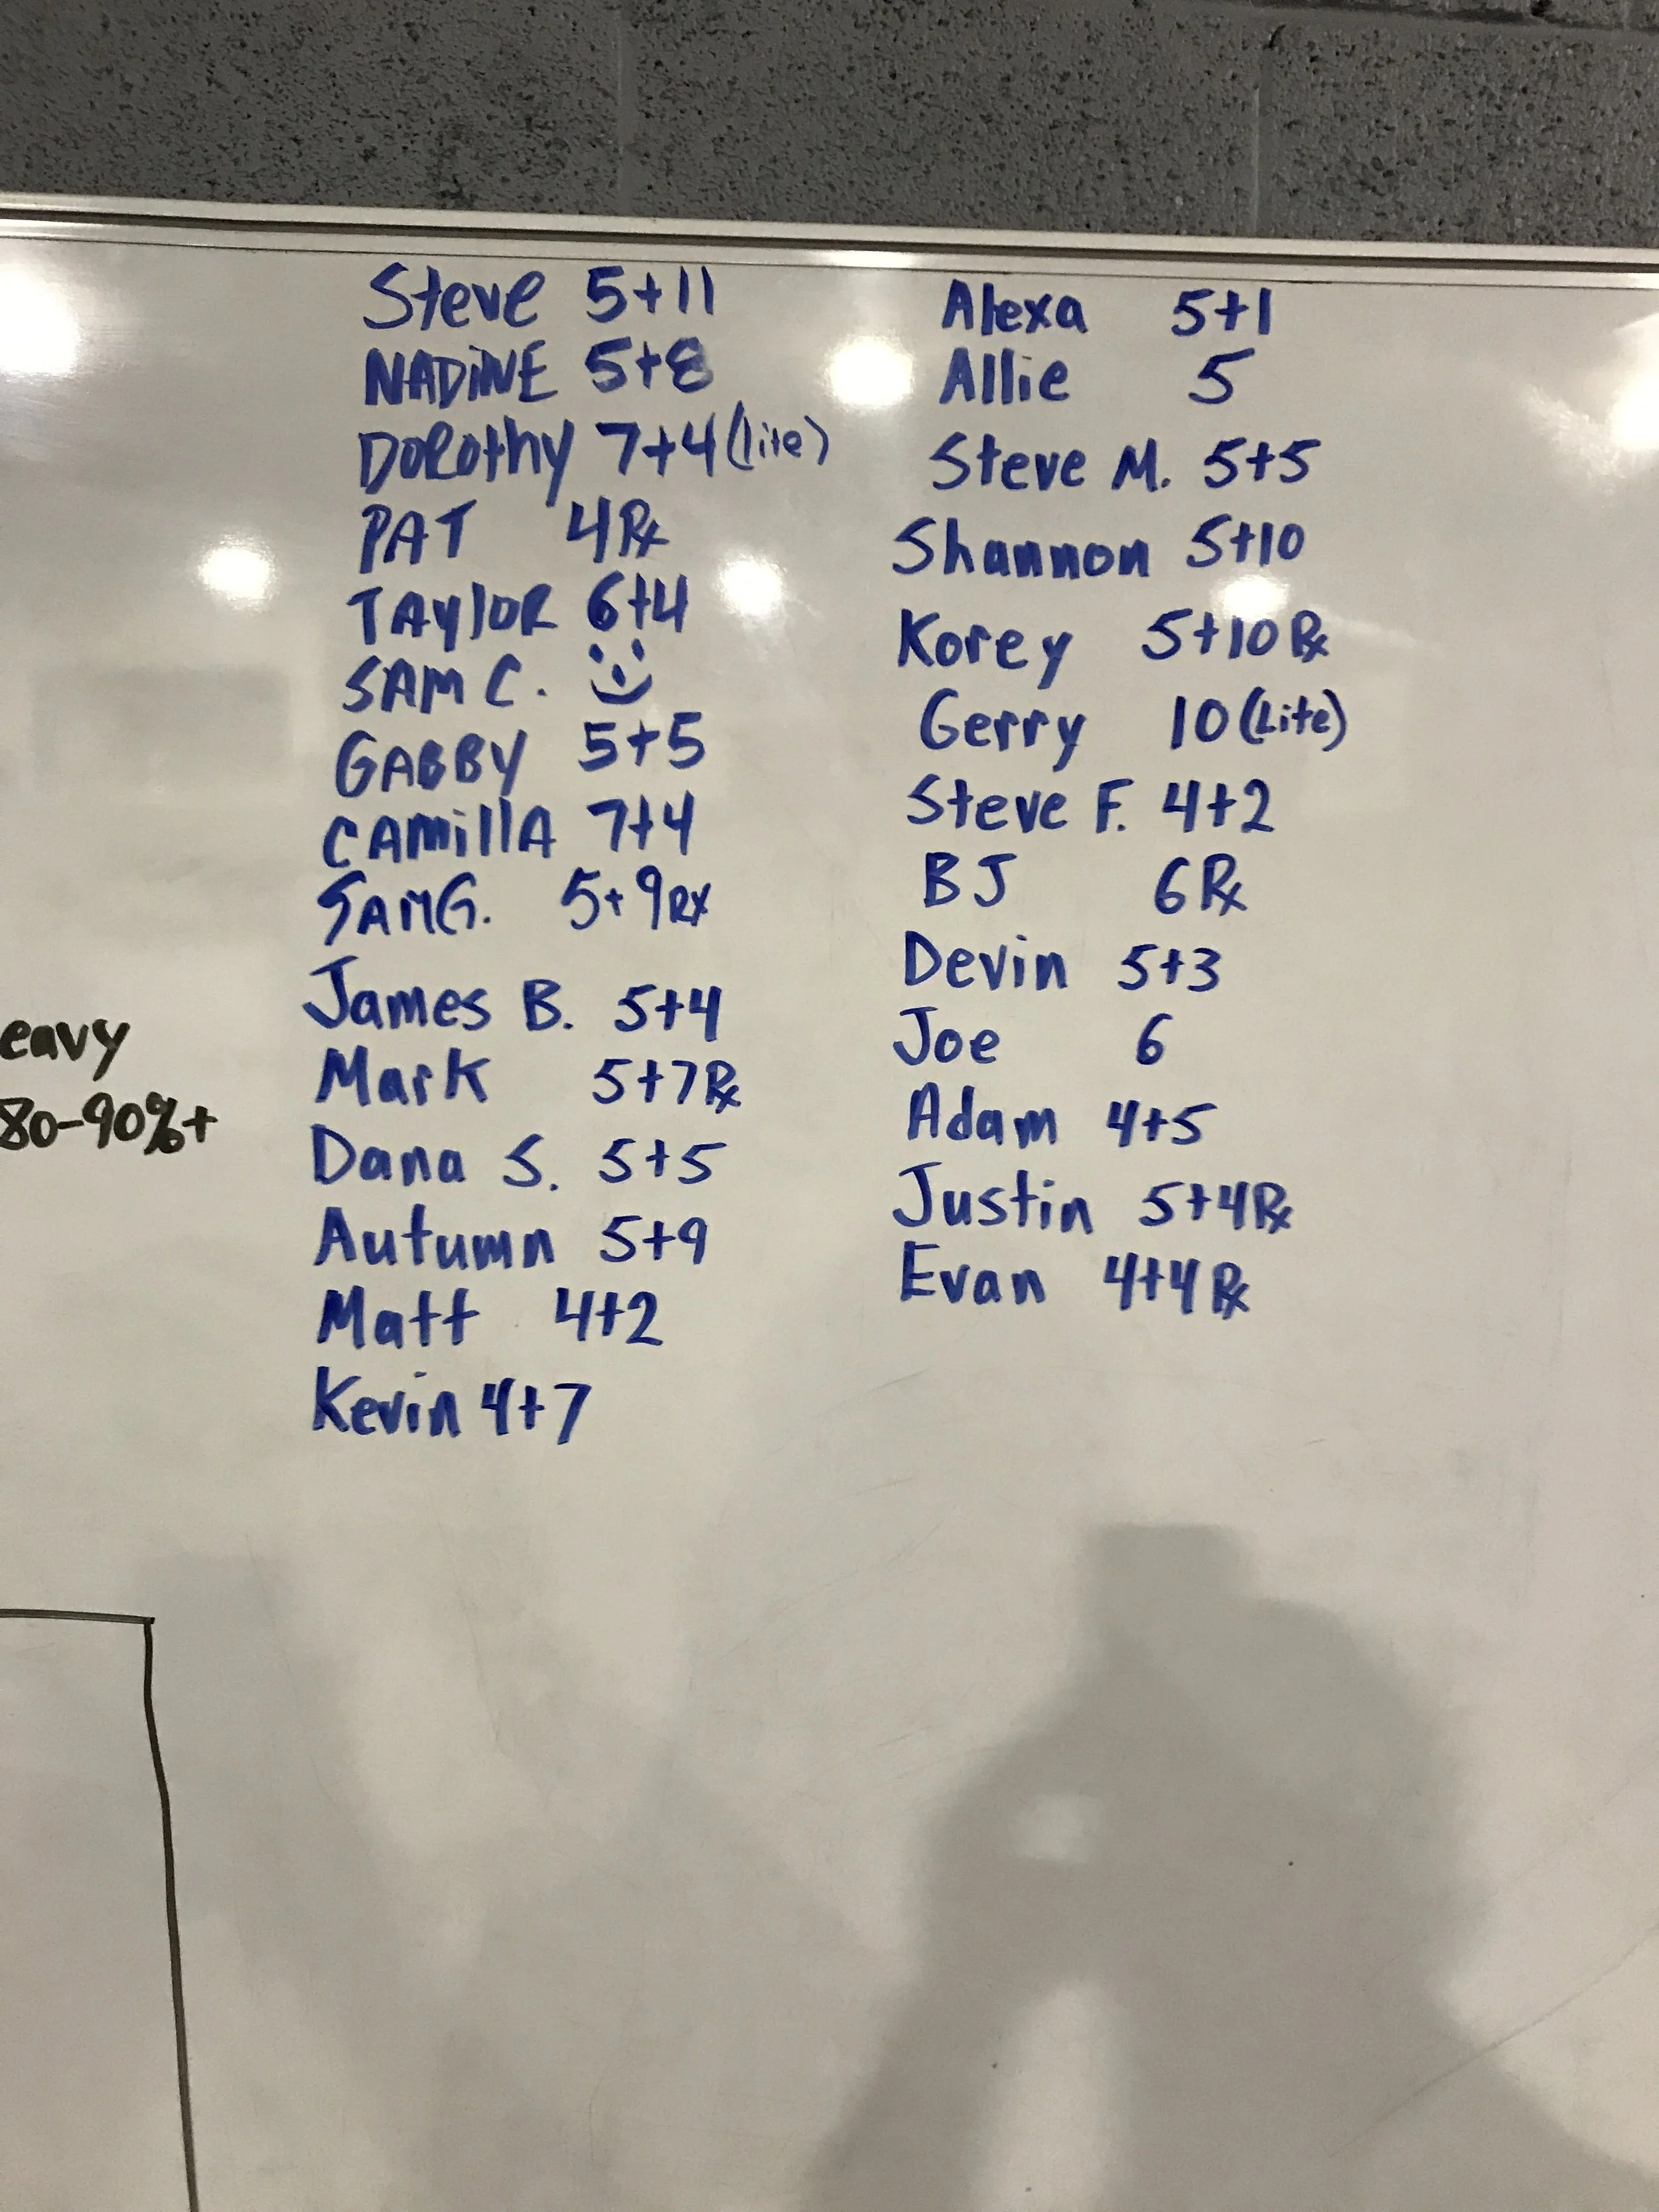 Steve 5+11
NADiNE 5+8
DOROthy 7+4 (lite)
PAT 4 Rx
TAYlOR 6+4
SAM C.
GABBY 5+5
CAMillA 7+4
SAM G. 5+9 RX
James B. 5+4
Mark 5+7 Rx
Dana S. 5+5
Autumn 5+9
Matt 4+2
Kevin 4+7
Alexa 5+1
Allie 5
Steve M. 5+5
Shannon 5+10
Korey 5+10 Rx
Gerry 10 (Lite)
Steve F. 4+2
BJ 6 Rx
Devin 5+3
Joe 6
Adam 4+5
Justin 5+4 Rx
Evan 4+4 Rx
eavy
80-90%+